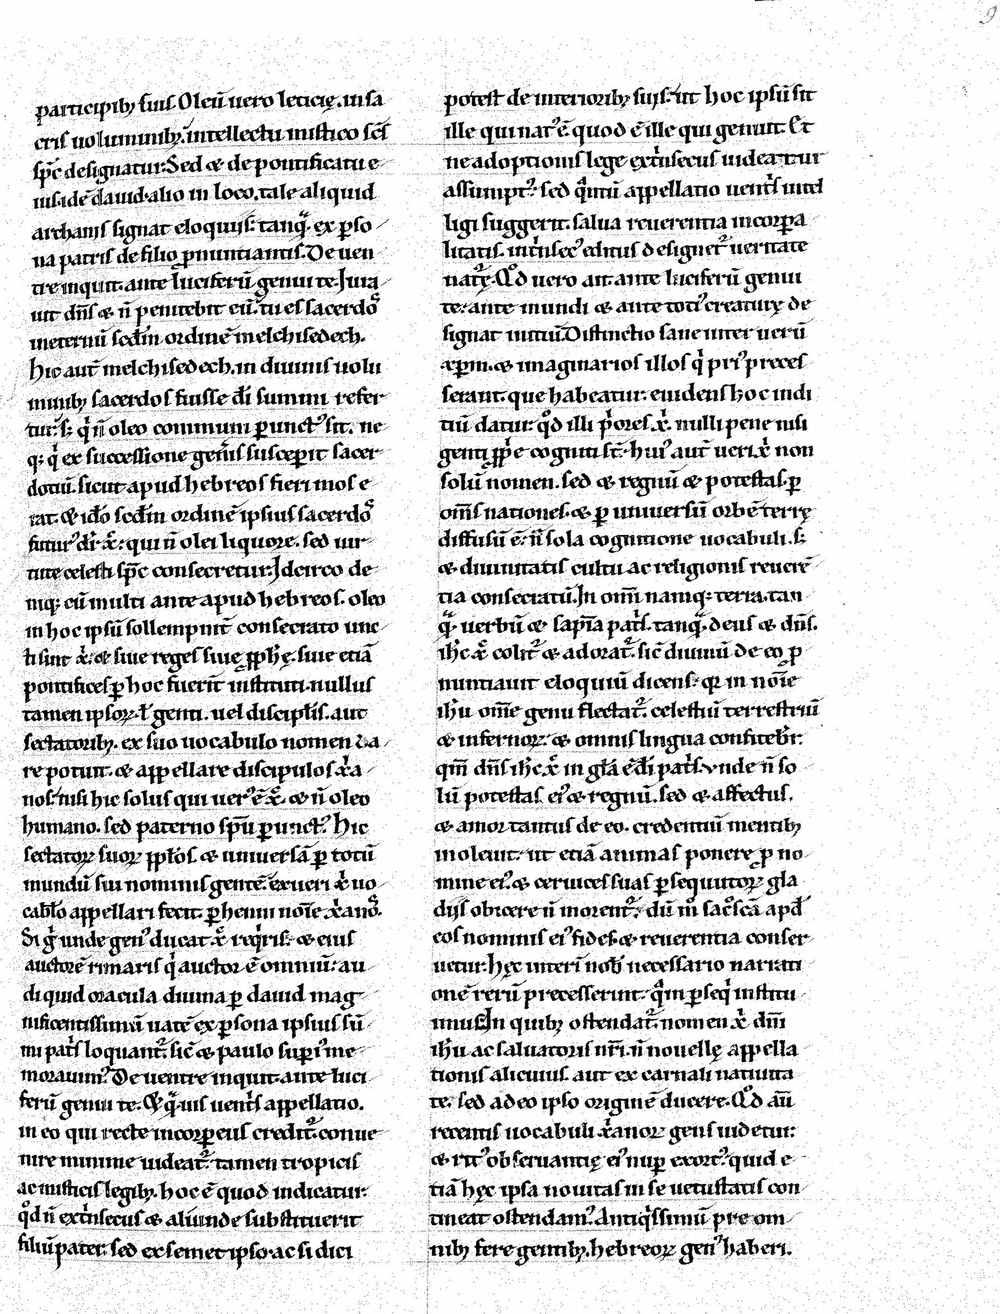 9
participib; suis. Oleū uero leticię. in sa
cris uoluminib;. intellectu mistico sc̄s
sp̄c designatur. Sed & de pontificatu e
iusdē dauid. alio in loco. tale aliquid
archanis signat eloquiis. tanq̄. ex p̱so
na patris de filio p̱nuntiantis. De uen
tre inquit. ante luciferū genui te. Iura
uit dn̄s & n̄ penitebit eū. tu es sacerdo
ineternū sc̄dm ordinē melchisedech.
Hic aut̄ melchisedech. in diuinis uolu
minib; sacerdos fuisse dī summi refer
tur. s; qͥ n̄ oleo communi p̱unctꝰ sit. ne
q; qͥ ex successione gen̄is suscep̱it sacer
dotiū. sicut apud hebreos fieri mos e
rat. & idō sc̄dm ordinē ipsius sacerdoͬ
futurꝰ dr̄ xp̄c. qui n̄ olei liquore. sed uir
tute celesti sp̄c consecretur. Idcirco de
niq; cū multi ante apud hebreos. oleo
in hoc ipsū sollempnit̄ consecrato unc
ti sint xp̄i. & siue reges siuę p̱phę. siue etiā
pontifices p̱ hoc fuerīt instituti. nullus
tamen ipsoꝝ. t̄ genti. uel disciplīs. aut
sectatorib;. ex suo uocabulo nomen da
re potuit. & appellare discipulos xp̄ia
nos. nisi hic solus qui uerꝰ ē xp̄c. & n̄ oleo
humano. sed paterno sp̄u p̱unctꝰ. Hic
sectatoꝝ suoꝝ pp̄los. & uniuersā p̱ totū
mundū sui nominis gentē. ex ueri xp̄i uo
cab̄lo appellari fecit. p̱henni nōīe xp̄ianoͬ.
Si g̊ unde genꝰ ducat xp̄c reqͥris. & eius
auctorē rimaris qͥ auctor ē omniū. au
di quid oracula diuina p̱ dauid mag
nificentissimū uatē ex p̱sona ipsius sū
mi pat̄s loquantᷣ. sic̄ & paulo sup̱iꝰ me
morauimꝰ. De uentre inquit. ante luci
ferū genui te. Et qͣuis uent̄s appellatio.
in eo qui recte incorp̱eus creditᷣ. conue
nire minime uideatᷣ. tamen tropicis
ac misticis legib;. hoc ē quod indicatur.
qd̊ n̄ extͥnsecus & aliunde substituerit
filiū pater. sed ex semetipso. ac si dici
potest de interiorib; suis. ut hoc ipsū sit
ille qui natꝰ ē quod ē ille qui genuit. Et
ne adoptionis lege extͥnsecus uideatur
assumptꝰ. sed qͣntū appellatio uent̄s intel
ligi suggerit. salua reuerentia incorp̱a
litatis. intͥnsecꝰ editus designetᷣ ueritate
naturę. Qd̊ uero ait. ante luciferū genui
te. ante mundi & ante totiꝰ creaturę de
signat initiū. Distinctio sane inter uerū
xp̄m. & imaginarios illos qͥ priꝰ preces
serant. que habeatur. euidens hoc indi
tiū datur. qd̊ illi p̄ores xp̄i. nulli pene nisi
genti p̱p̄e cogniti st̄. huiꝰ aut̄ ueri xp̄i non
solū nomen. sed & regnū & potestas. p̱
om̄s nationes. & p̱ uniuersū orbē terrę
diffusū ē. n̄ sola cognitione uocabuli. s;
& diuinitatis cultu ac religionis reuerē
tia consecratū. In om̄i namq; terra. tan
qͣ. uerbū & sapīa pat̄s. tanqͣ. deus & dn̄s.
ih̄c xp̄c colitᷣ & adoratᷣ. sic̄ diuinū de eo p̱
nuntiauit eloquiū dicens. qr̄ in nōīe
ih̄u om̄e genu flectatᷣ. celestiū terrestriū
& infernoꝝ. & omnis lingua confitebr̄.
qm̄ dn̄s ih̄c xp̄c in gl̄a ē dī pat̄s. vnde n̄ so
lū potestas eiꝰ & regnū. sed & affectus.
& amor tantus de eo. credentiū mentib;
inoleuit. ut etiā animas ponere p̱ no
mine eiꝰ. & ceruices suas p̱sequutoꝝ gla
diis obicere n̄ morentᷣ. dū m̊ sac̊sc̄ā apd̄
eos nominis eiꝰ fides. & reuerentia conser
uetur. Hęc interī nob̄ necessario narrati
onē rerū precesserint. qͣm p̱seqͥ institu
imus. In quib; ostendatᷣ. nomen xp̄i dn̄i
ih̄u ac saluatoris nr̄i. n̄ nouellę appella
tionis alicuius. aut ex carnali natiuita
te. sed a deo ipso originē ducere. Qd̊ aū
recentis uocabuli xp̄ianoꝝ gens uidetur.
& ritꝰ obseruantię eiꝰ nup̱ exortꝰ. quid e
tiā hęc ipsa nouitas in se uetustatis con
tineat ostendamꝰ. Antiqͥssimū pre om
nib; fere gentib;. hebreoꝝ genꝰ haberi.